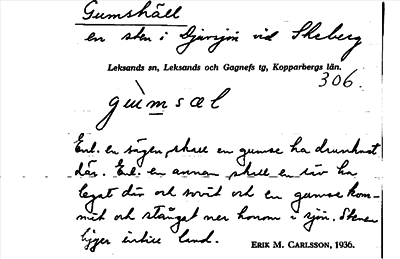 Gumshäll
en sten i Djursjön vid Skeberg
Leksands sn, Leksands och Gagnefs tg, Kopparbergs län.
306.
gùmsæl
Enl. en sägen skall en gumse ha drunknat
där. Enl. en annan skall en tiv ha
legat där och sovit och en gumse kom-
mit och stångat ner honom i sjön. Stenen
ligger intill land.
ERIK M. CARLSSON, 1936.